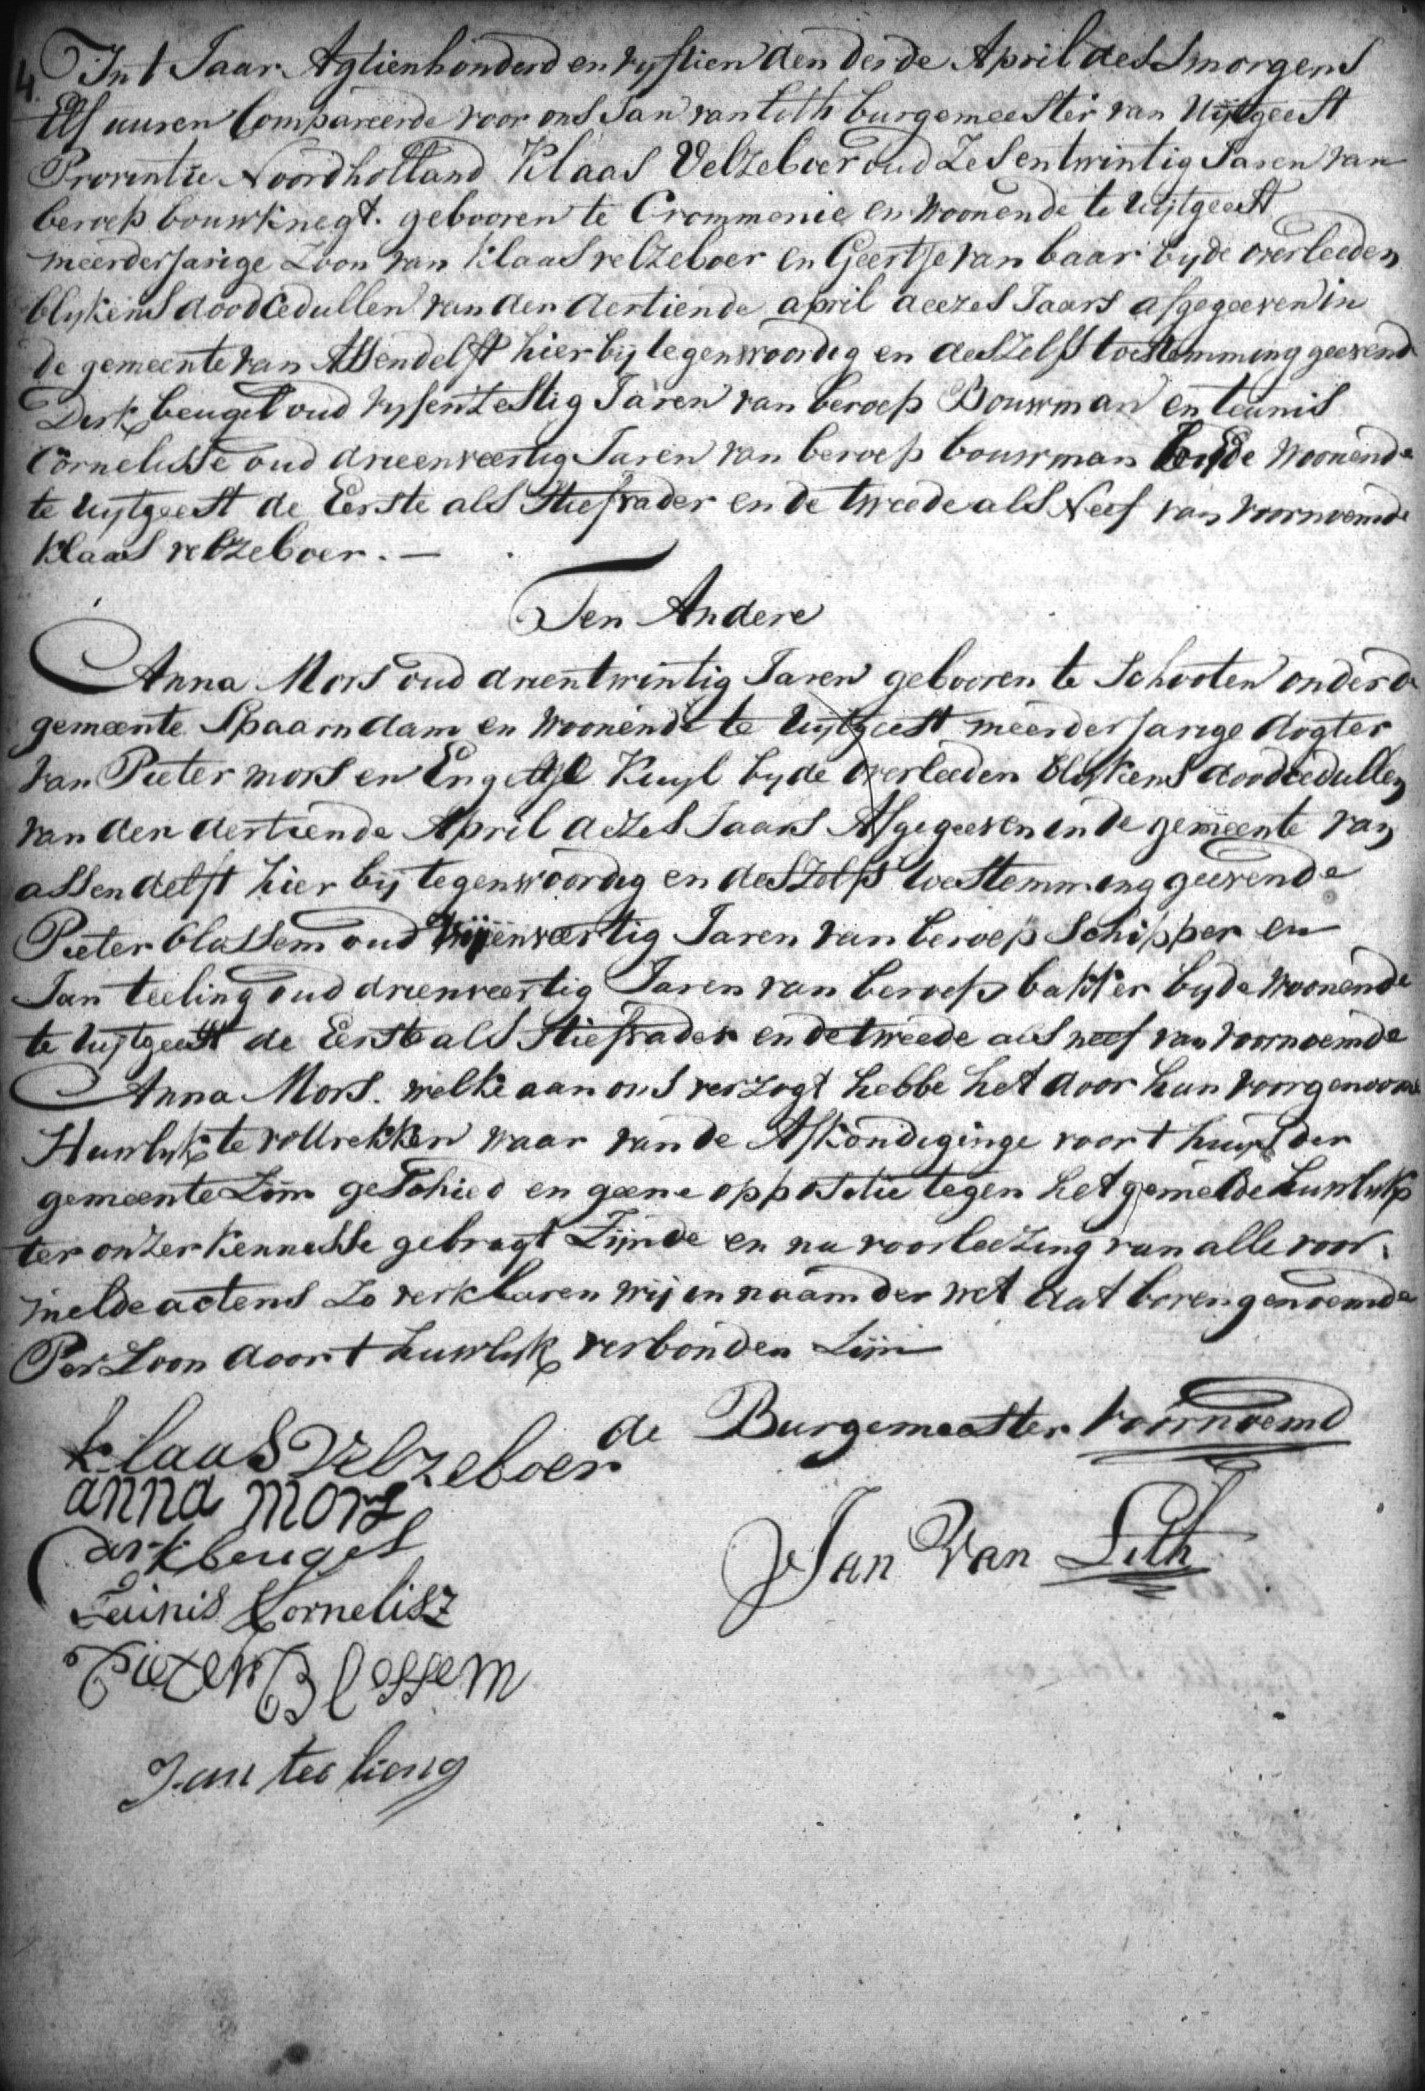 4. In t Jaar Agtienhonderd en vyftien den derde April des smorgens
Elf uuren Compareerde voor ons Jan van Lith burgemeester van Uijtgeest
Provintie Noordholland Klaas Velzeboer oud Zesentwintig Jaren van
beroep bouwknegt. gebooren te Crommenie en woonende te Uijtgeest
meerderjarige Zoon van Klaas velzeboer en Geertje van baar byde overleeden
blykens doodcedullen van den dertiende april deezes Jaars afgegeeven in
de gemeente van Assendelft hier bij tegenwoordig en deszelfs toestemming geevend
Dirk beugel oud vyfenzestig Jaren van beroep Bouwman en teunis
Cornelisse oud drieenveertig Jaren van beroep bouwman beyde woonende
te Uijtgeest de Eerste als Stiefvader en de tweede als Neef van voornoemde
Klaas velzeboer. —
Ten Andere
Anna Mors oud drientwintig Jaren gebooren te Schooten onder de
gemeente Spaarndam en woonende te Uijtgeest meerderjarige dogter
van Pieter mors en Engeltje Kuyl byde overleeden blykens doodcedullen
van den dertiende April dezes Jaars Afgegeeven in de gemeente van
assendelft hier bij tegenwoordig en deszelfs toestemming geevende
Pieter blassem oud veertig Jaren van beroep Schipper en
Jan teeling oud drienveertig Jaren van beroep bakker byde woonende
te Uijtgeest de Eerste als Stiefvader en de tweede als neef van voornoemde
Anna Mors. welke aan ons verzogt hebbe het door hun voorgenoome
Huwlyk te voltrekken waar van de Afkondiginge voor t huys der
gemeente Zijn geschied en geene oppositie tegen het gemelde huwlyk
ter onzer kennisse gebragt Zijnde en na voorleezing van alle voor
melde actens Zo verklaren wij in naam der wet dat bovengenoemde
Perzoon door t huwlyk verbonden Zijn
de Burgemeester voornoemd
Klaas Velzeboer
anna mors
dirk beugel
Jan Van Lith
Teunis Cornelisz
Pieter Blessem
Jan teeling